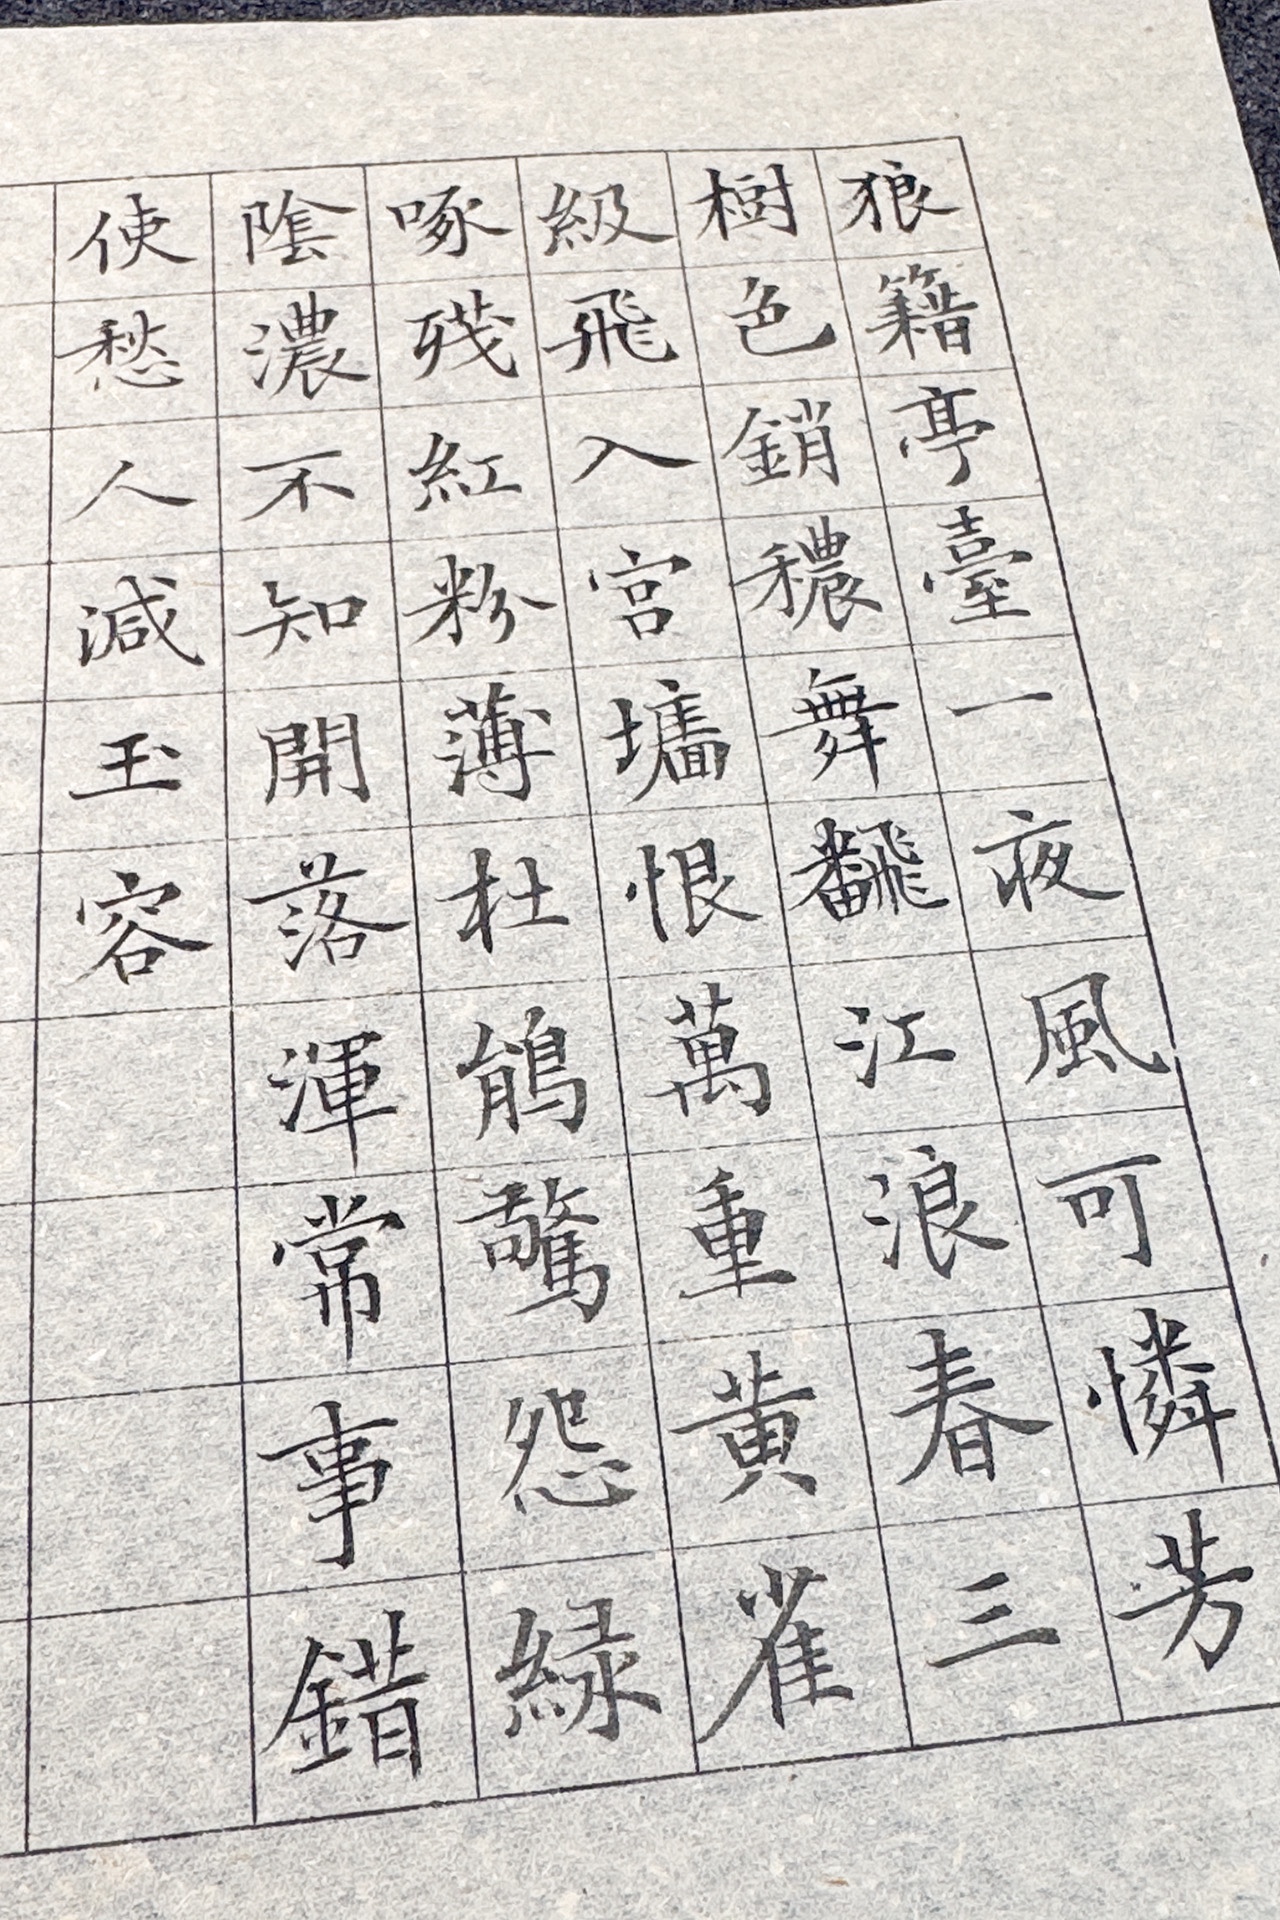 狼籍亭臺一夜風可憐芳
樹色銷穠舞飜江浪春三
級飛入宮墻恨萬重黃雀
啄殘紅粉薄杜鵑驚怨綠
陰濃不知開落渾常事錯
使愁人減玉容